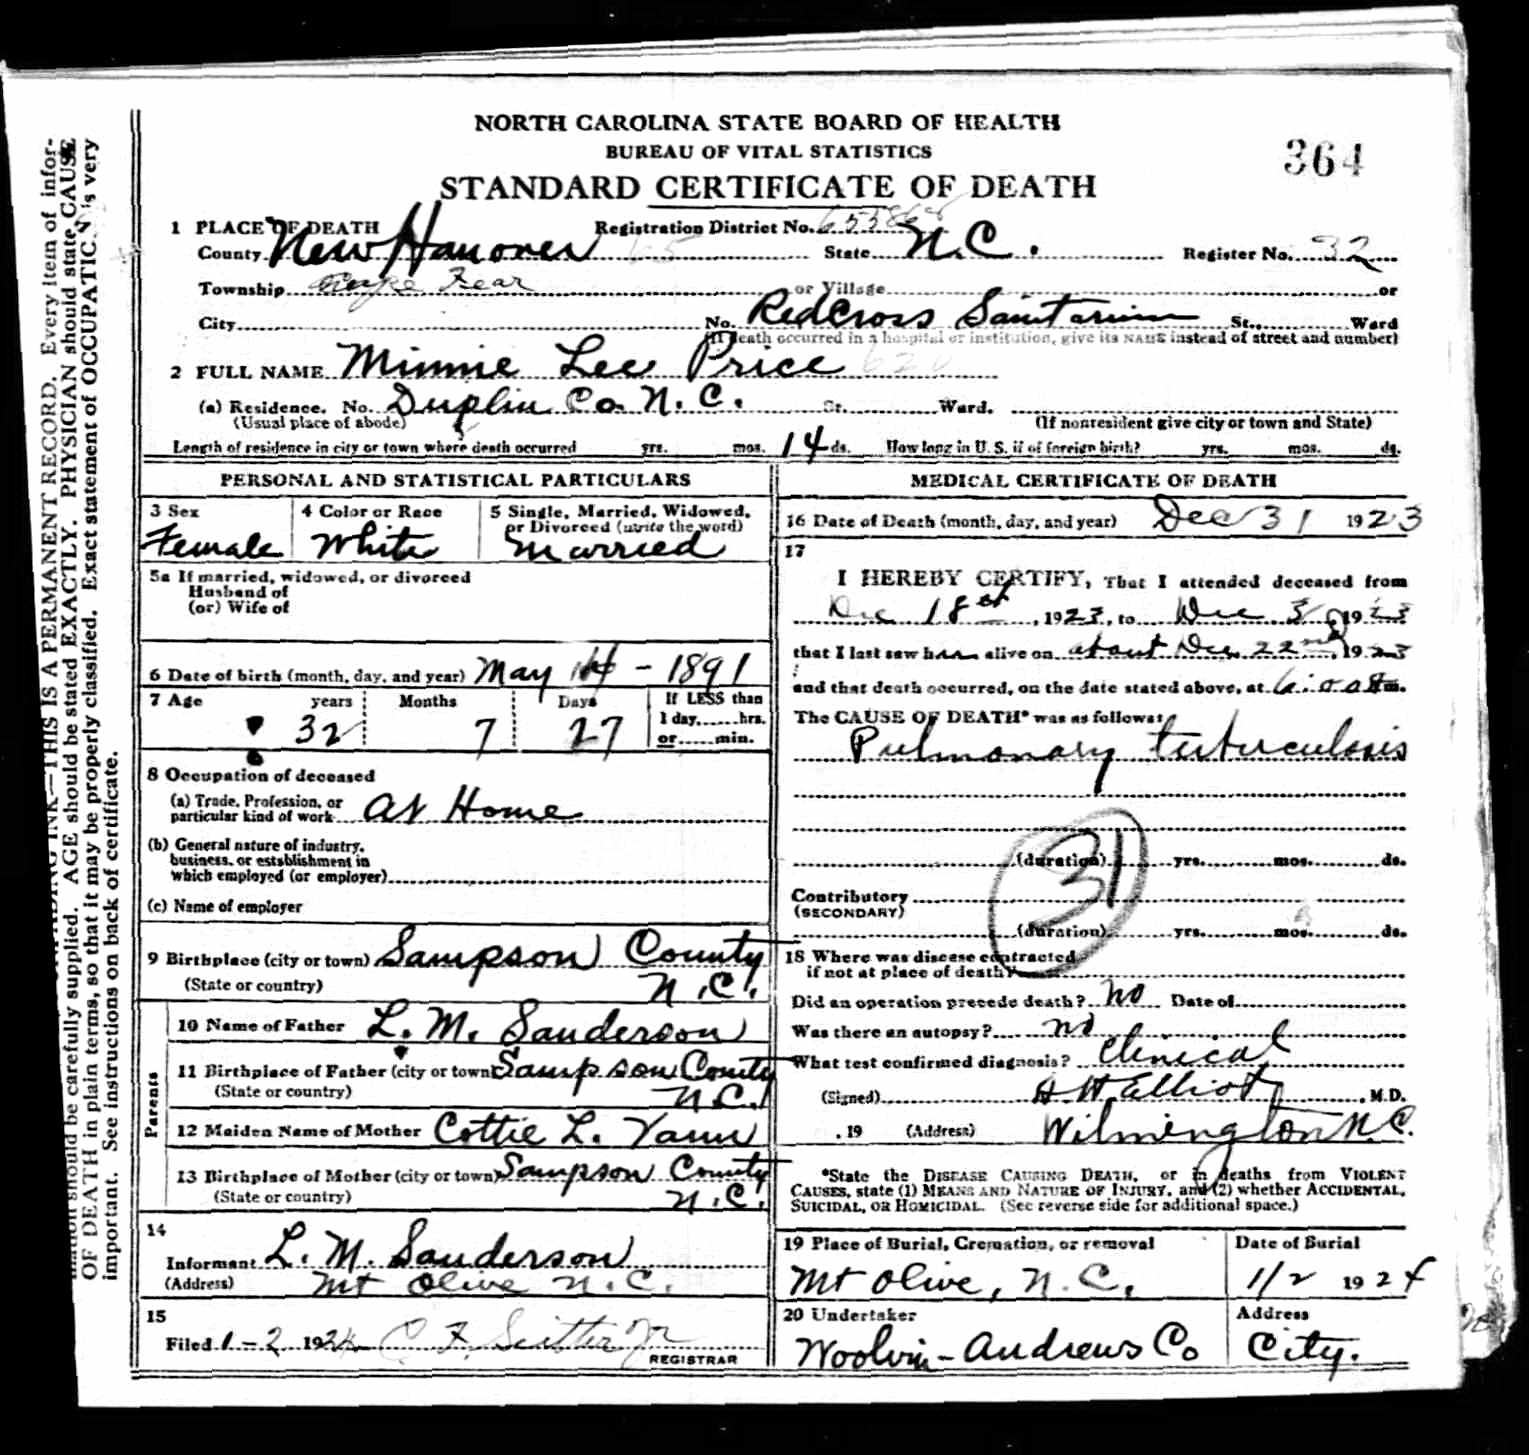 NORTH CAROLINA STATE BOARD OF HEALTH
BUREAU OF VITAL STATISTICS
STANDARD CERTIFICATE OF DEATH
364
1 PLACE OF DEATH Registration District No.
County New Hanover 65 State N.C. Register No. 32
Township Cape Fear or Village or
City No. Red Cross Sanitarium St., Ward
(If death occurred in a hospital or institution, give its NAME instead of street and number)
2 FULL NAME Minnie Lee Price
(a) Residence. No. Duplin Co. N.C. St. Ward.
(Usual place of abode) (If nonresident give city or town and State)
Length of residence in city or town where death occurred yrs. mos. 14 ds. How long in U. S. if of foreign birth? yrs. mos. ds.
PERSONAL AND STATISTICAL PARTICULARS
3 Sex
Female
4 Color or Race
White
5 Single, Married, Widowed,
or Divorced (write the word)
Married
5a If married, widowed, or divorced
Husband of
(or) Wife of
6 Date of birth (month, day, and year) May 14 - 1891
7 Age years Months Days If LESS than
1 day.......hrs.
32 7 27 or......min.
8 Occupation of deceased
(a) Trade, Profession, or
particular kind of work At Home
(b) General nature of industry,
business, or establishment in
which employed (or employer)
(c) Name of employer
9 Birthplace (city or town) Sampson County
(State or country) N.C.
Parents
10 Name of Father L. M. Sanderson
11 Birthplace of Father (city or town) Sampson County
(State or country) N.C.
12 Maiden Name of Mother Cottie L. Vann
13 Birthplace of Mother (city or town) Sampson County
(State or country) N.C.
14
Informant L. M. Sanderson
(Address) Mt Olive N.C.
15
Filed 1-2 1924
REGISTRAR
MEDICAL CERTIFICATE OF DEATH
16 Date of Death (month, day, and year) Dec 31 1923
17
I HEREBY CERTIFY, That I attended deceased from
Dec 18 , 1923, to Dec 31 1923
that I last saw her alive on about Dec 22nd, 1923
and that death occurred, on the date stated above, at m.
The CAUSE OF DEATH* was as follows:
Pulmonary tuberculosis
31
(duration) yrs. mos. ds.
Contributory
(SECONDARY)
(duration) yrs. mos. ds.
18 Where was disease contracted
if not at place of death?
Did an operation precede death? no Date of
Was there an autopsy? no
What test confirmed diagnosis? Clinical
(Signed) M.D.
, 19 (Address) Wilmington N.C.
*State the DISEASE CAUSING DEATH, or in deaths from VIOLENT
CAUSES, state (1) MEANS AND NATURE OF INJURY, and (2) whether ACCIDENTAL,
SUICIDAL, OR HOMICIDAL. (See reverse side for additional space.)
19 Place of Burial, Cremation, or removal
Mt Olive, N.C.
Date of Burial
1/2 1924
20 Undertaker
Woolvin-Andrews Co
Address
City.
THIS IS A PERMANENT RECORD. Every item of infor-
mation should be carefully supplied. AGE should be stated EXACTLY. PHYSICIAN should state CAUSE
OF DEATH in plain terms, so that it may be properly classified. Exact statement of OCCUPATION is very
important. See instructions on back of certificate.